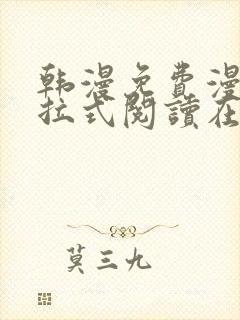 韩漫免费漫
拉式閱讀在
莫三九